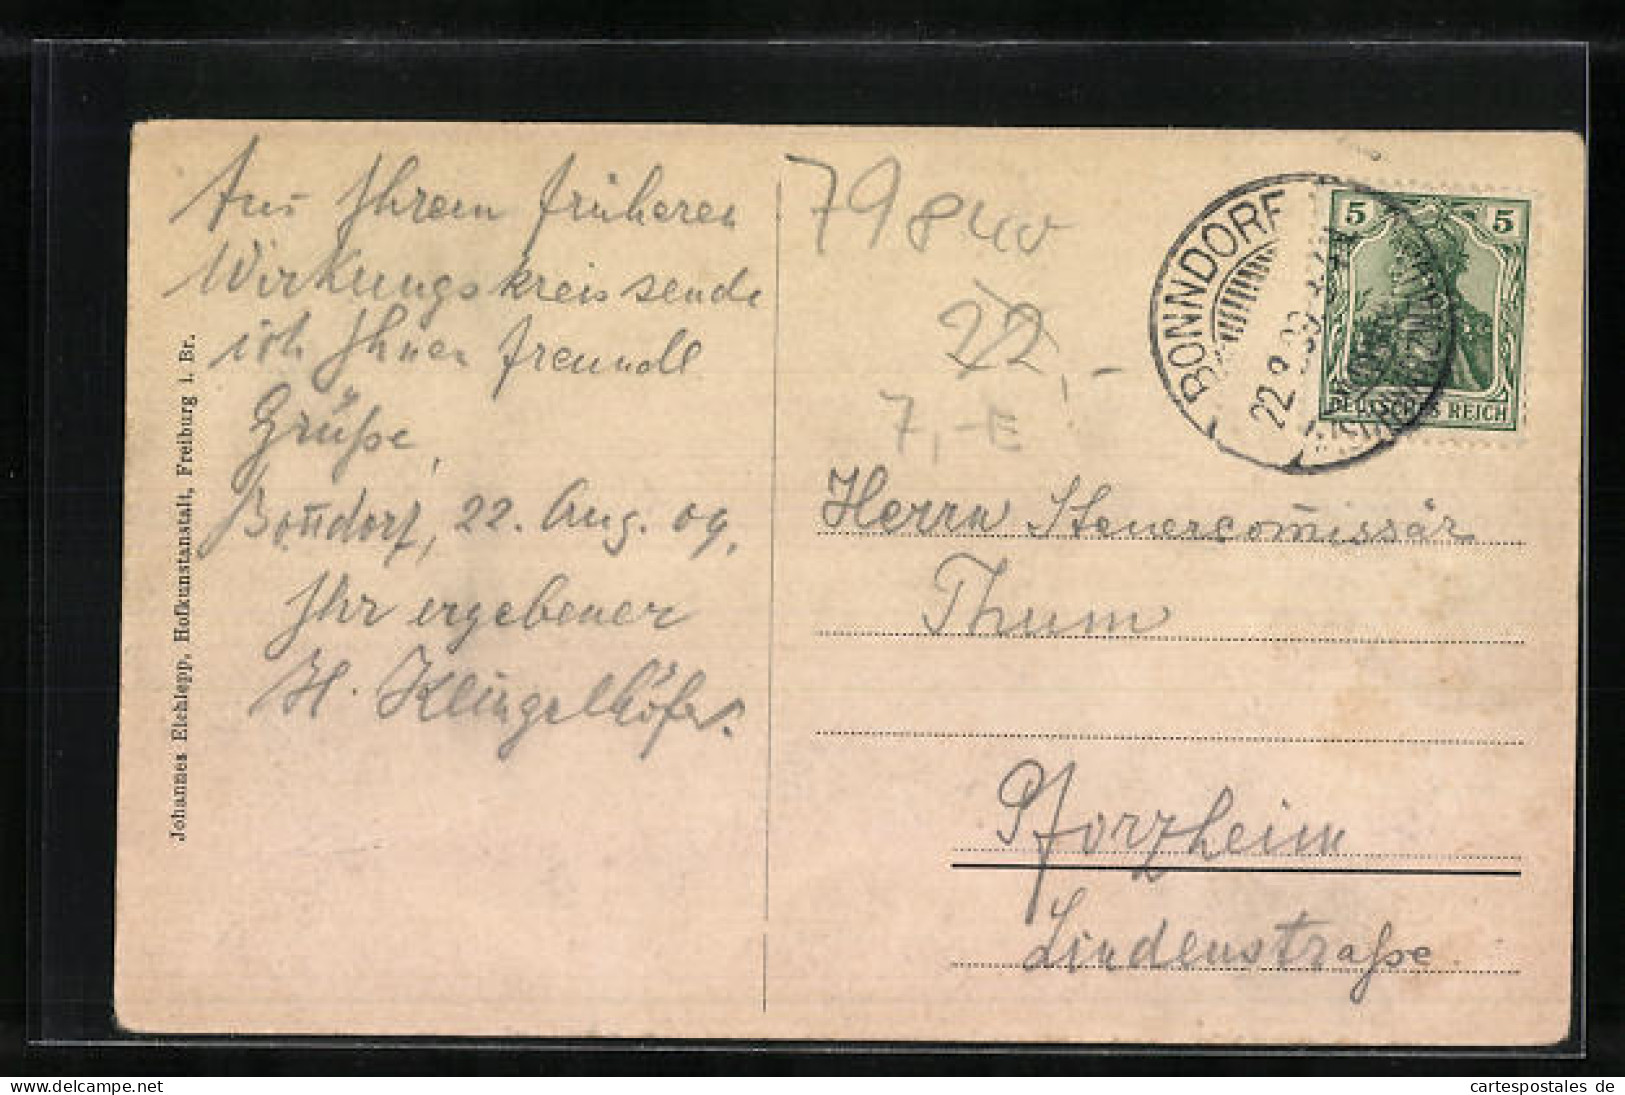 Aus Ihrem früheren
Wirkungskreis sende
ich Ihnen freundl
Grüße,
Boñdorf, 22. Aug. 09.
Ihr ergebener
H. Klingelhöfer.
Johannes Elchlepp, Hofkunstanstalt, Freiburg i. Br.
79840
22,-
7,-E
BONNDORF
22.8.09
5 5
DEUTSCHES REICH
Herrn Steuercom̄issär
Thum
Pforzheim
Lindenstraße.
Ansichtskarten-center
cartespostales de